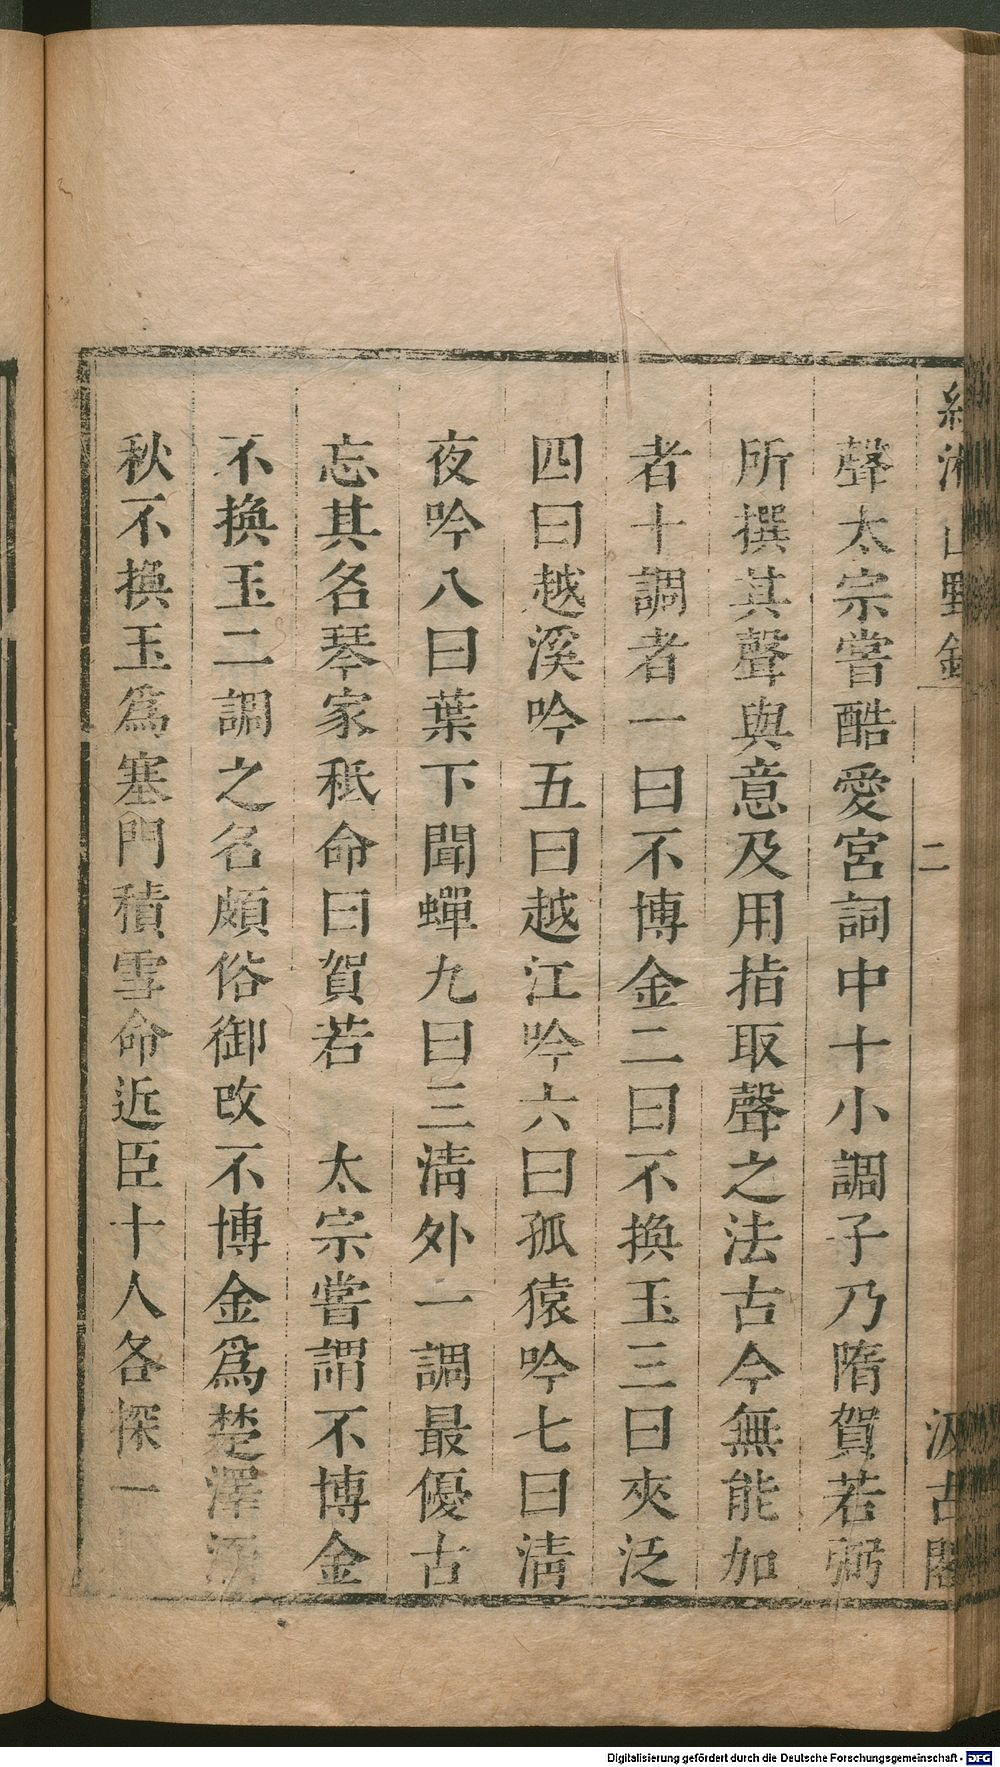 續湘山野錄
二
汲古閣
聲太宗嘗酷愛宮詞中十小調子乃隋賀若弼
所撰其聲與意及用指取聲之法古今無能加
者十調者一曰不博金二曰不換玉三曰夾泛
四曰越溪吟五曰越江吟六曰孤猿吟七曰淸
夜吟八曰葉下聞蟬九曰三淸外一調最優古
忘其名琴家秪命曰賀若　太宗嘗謂不博金
不換玉二調之名頗俗御改不博金爲楚澤涵
秋不換玉爲塞門積雪命近臣十人各探一
Digitalisierung gefördert durch die Deutsche Forschungsgemeinschaft - DFG